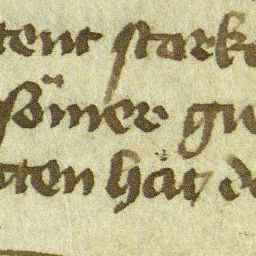 tent starke
Sömer gu
tten hät de